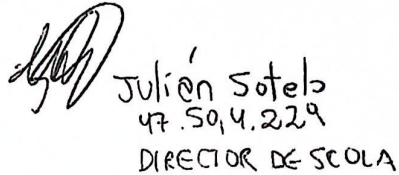 Julián Sotelo
47.504.229
DIRECTOR DE SCOLA